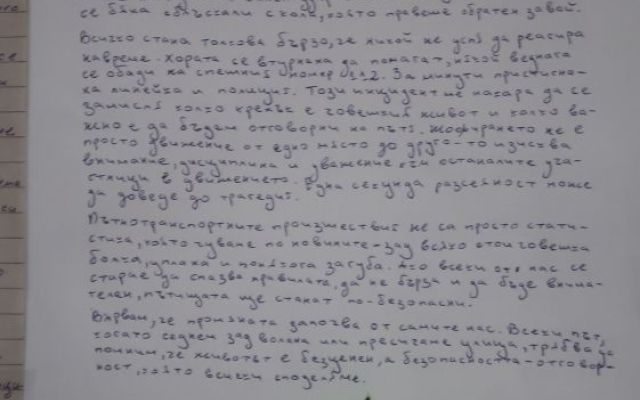 се бяха сблъскали с кола, която правеше обратен завой.
Всичко стана толкова бързо, че никой не успя да реагира
навреме. Хората се втурнаха да помагат, някой веднага
се обади на спешния номер 112. За минути пристигна-
ха линейка и полиция. Този инцидент ме накара да се
замисля колко крехък е човешкия живот и колко ва-
жно е да бъдем отговорни на пътя. Шофирането не е
просто движение от едно място до друго-то изисква
внимание, дисциплина и уважение към останалите уча-
стници в движението. Една секунда разсеяност може
да доведе до трагедия.
Пътнотранспортните произшествия не са просто стати-
стика, която чуваме по новините-зад всяко стои човешка
болка, уплаха и понякога загуба. Ако всеки от нас се
старае да спазва правилата, да не бърза и да бъде внима-
телен, пътищата ще станат по-безопасни.
Вярвам, че промяната започва от самите нас. Всеки път,
когато седнем зад волана или пресичаме улица, трябва да
помним, че животът е безценен, а безопасността-отговор-
ност, която всички споделяме.